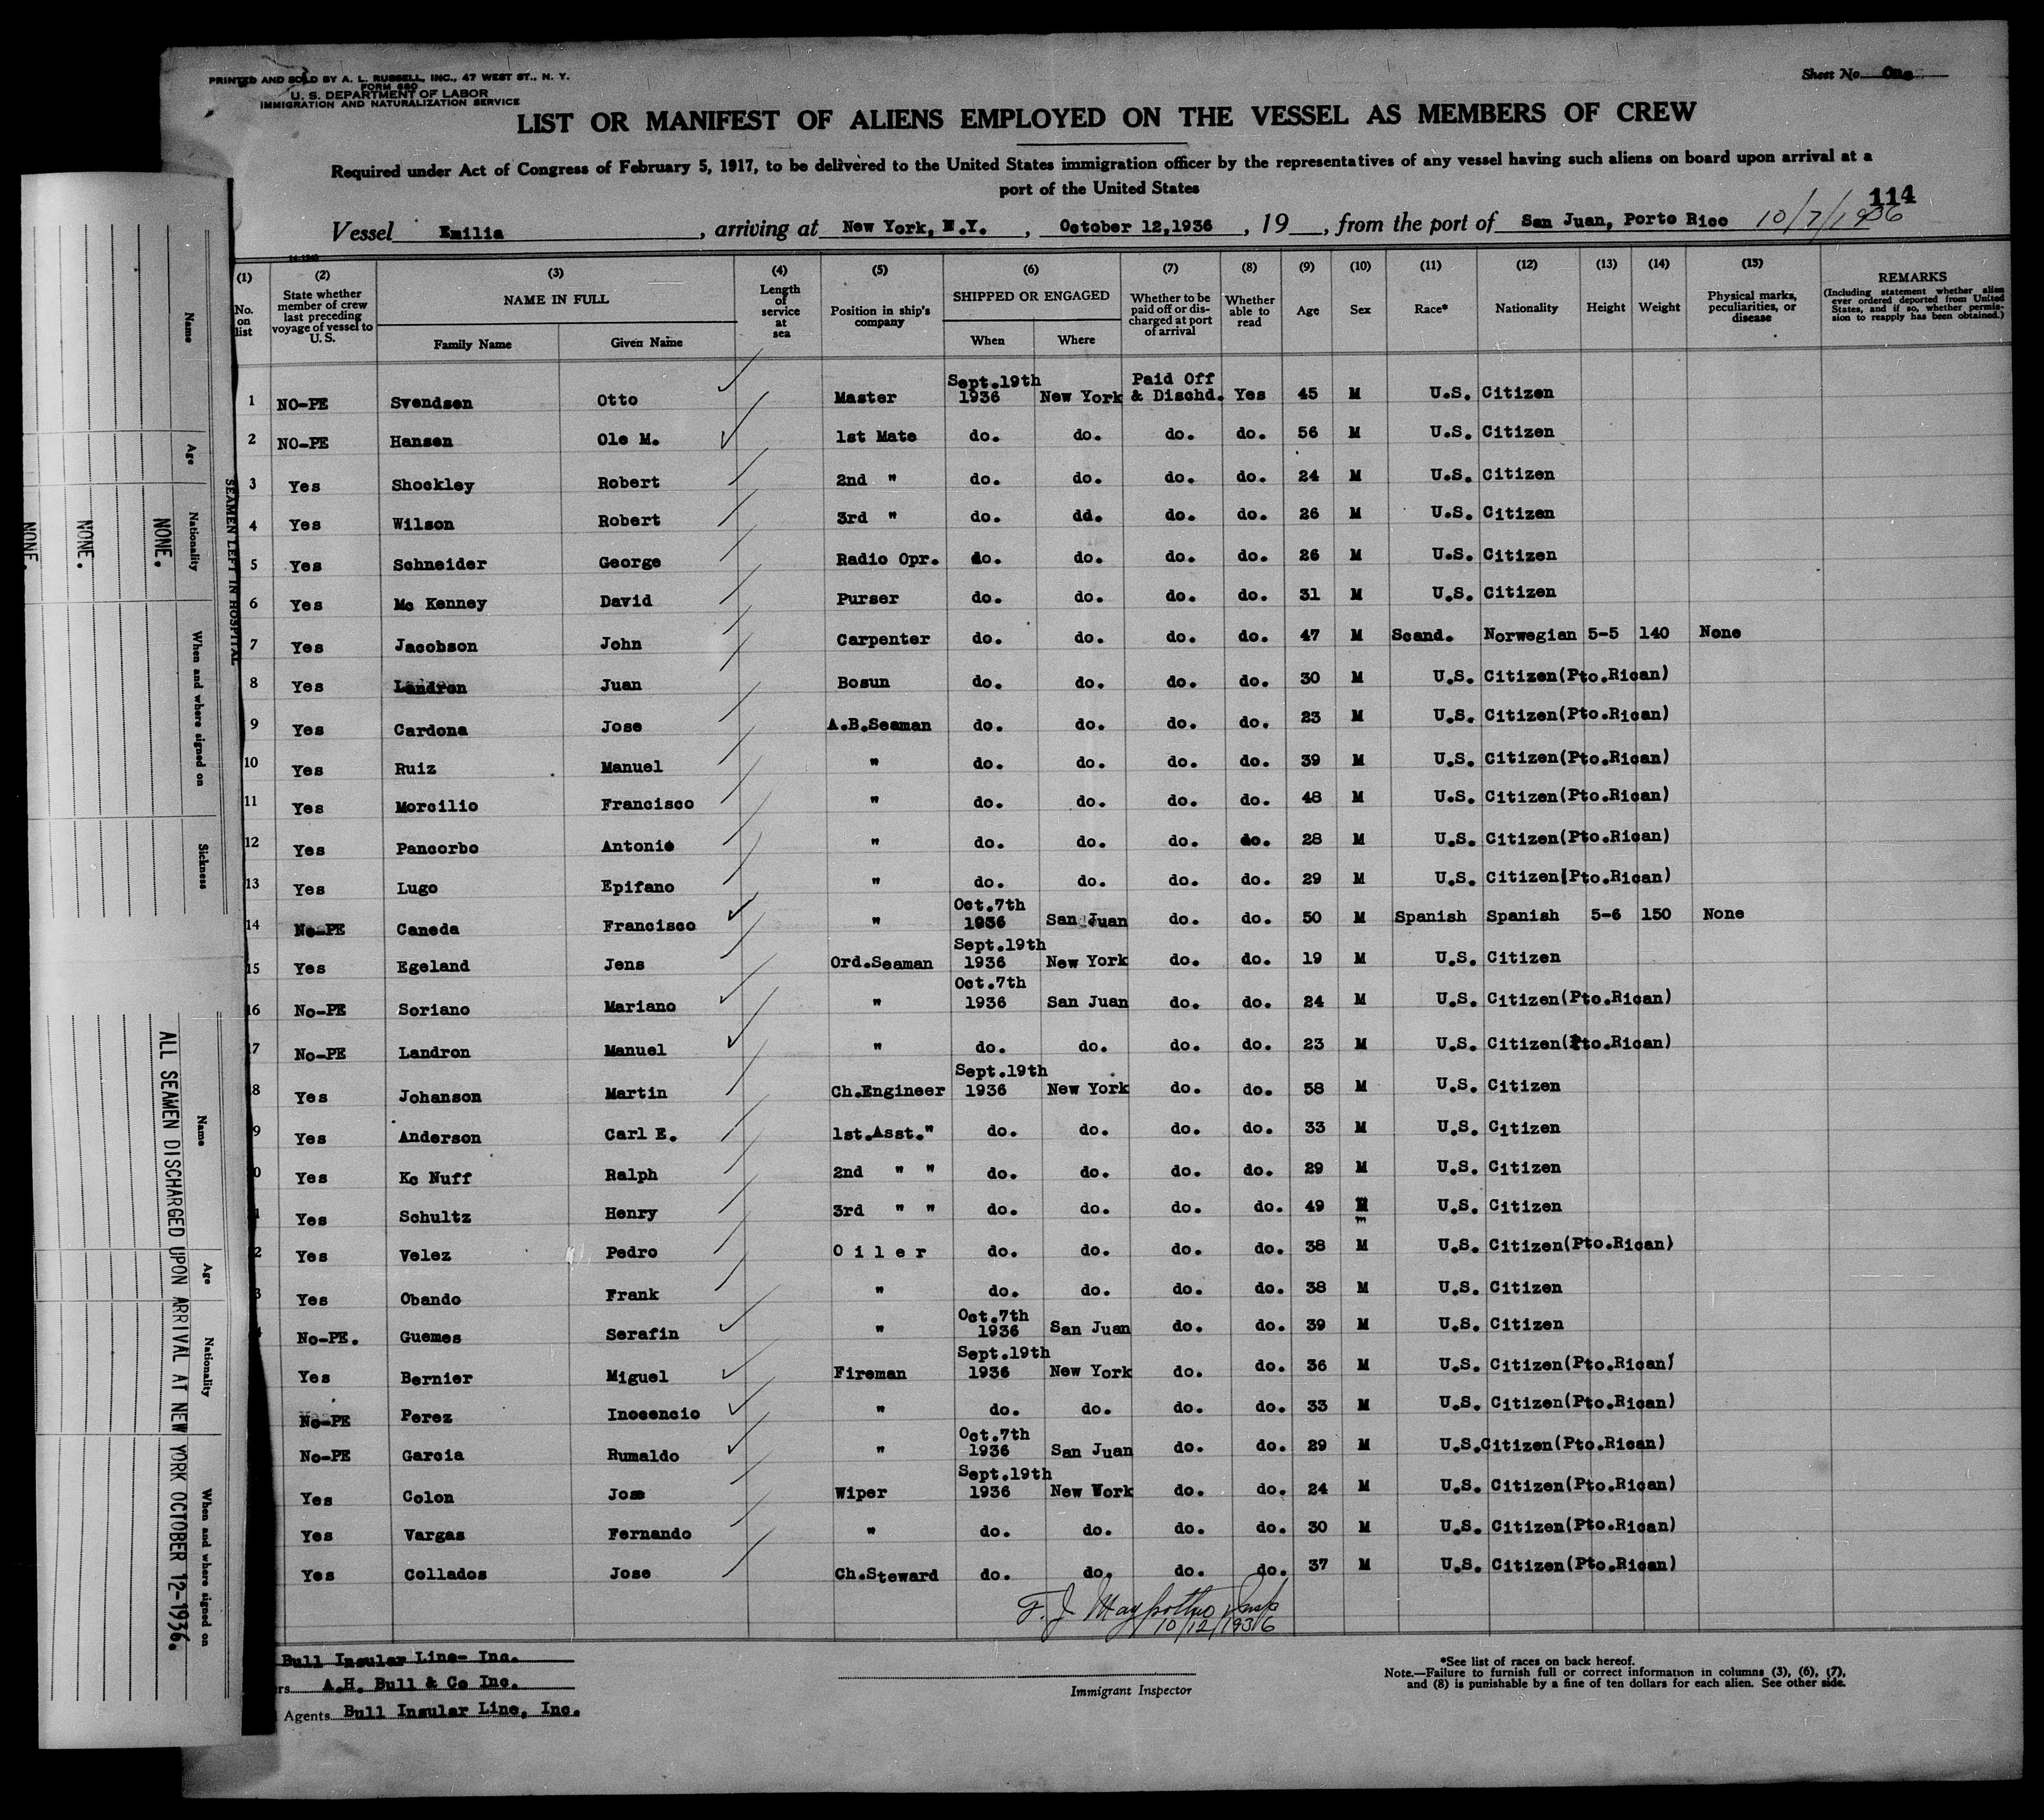 PRINTED AND SOLD BY A. L. RUSSELL, INC., 47 WEST ST., N. Y.
FORM 680
U. S. DEPARTMENT OF LABOR
IMMIGRATION AND NATURALIZATION SERVICE
Sheet No. One
LIST OR MANIFEST OF ALIENS EMPLOYED ON THE VESSEL AS MEMBERS OF CREW
Required under Act of Congress of February 5, 1917, to be delivered to the United States immigration officer by the representatives of any vessel having such aliens on board upon arrival at a
port of the United States
114
Vessel Emilia, arriving at New York, N.Y., October 12,1936, 19__, from the port of San Juan, Porto Rico 10/7/1936
(1) (2) (3) (4) (5) (6) (7) (8) (9) (10) (11) (12) (13) (14) (15)
No. on list
State whether member of crew last preceding voyage of vessel to U. S.
NAME IN FULL
Family Name
Given Name
Length of service at sea
Position in ship's company
SHIPPED OR ENGAGED
When
Where
Whether to be paid off or discharged at port of arrival
Whether able to read
Age
Sex
Race*
Nationality
Height
Weight
Physical marks, peculiarities, or disease
REMARKS
(Including statement whether alien ever ordered deported from United States, and if so, whether permission to reapply has been obtained.)
1 NO-PE Svendsen Otto Master Sept.19th 1936 New York Paid Off & Dischd. Yes 45 M U.S. Citizen
2 NO-PE Hansen Ole M. 1st Mate do. do. do. do. 56 M U.S. Citizen
3 Yes Shockley Robert 2nd " do. do. do. do. 24 M U.S. Citizen
4 Yes Wilson Robert 3rd " do. dd. do. do. 26 M U.S. Citizen
5 Yes Schneider George Radio Opr. do. do. do. do. 26 M U.S. Citizen
6 Yes Mc Kenney David Purser do. do. do. do. 31 M U.S. Citizen
7 Yes Jacobson John Carpenter do. do. do. do. 47 M Scand. Norwegian 5-5 140 None
8 Yes Landron Juan Bosun do. do. do. do. 30 M U.S. Citizen(Pto.Rican)
9 Yes Cardona Jose A.B.Seaman do. do. do. do. 23 M U.S. Citizen(Pto.Rican)
10 Yes Ruiz Manuel " do. do. do. do. 39 M U.S. Citizen(Pto.Rican)
11 Yes Morcilio Francisco " do. do. do. do. 48 M U.S. Citizen(Pto.Rican)
12 Yes Pancorbo Antonio " do. do. do. do. 28 M U.S. Citizen(Pto.Rican)
13 Yes Lugo Epifano " do. do. do. do. 29 M U.S. Citizen(Pto.Rican)
14 No-PE Caneda Francisco " Oct.7th 1936 San Juan do. do. 50 M Spanish Spanish 5-6 150 None
15 Yes Egeland Jens Ord.Seaman Sept.19th 1936 New York do. do. 19 M U.S. Citizen
16 No-PE Soriano Mariano " Oct.7th 1936 San Juan do. do. 24 M U.S. Citizen(Pto.Rican)
7 No-PE Landron Manuel " do. do. do. do. 23 M U.S. Citizen(Pto.Rican)
8 Yes Johanson Martin Ch.Engineer Sept.19th 1936 New York do. do. 58 M U.S. Citizen
9 Yes Anderson Carl E. 1st.Asst." do. do. do. do. 33 M U.S. Citizen
0 Yes Kc Nuff Ralph 2nd " " do. do. do. do. 29 M U.S. Citizen
1 Yes Schultz Henry 3rd " " do. do. do. do. 49 M U.S. Citizen
2 Yes Velez Pedro O i l e r do. do. do. do. 38 M U.S. Citizen(Pto.Rican)
3 Yes Obando Frank " do. do. do. do. 38 M U.S. Citizen
4 No-PE. Guemes Serafin " Oct.7th 1936 San Juan do. do. 39 M U.S. Citizen
Yes Bernier Miguel Fireman Sept.19th 1936 New York do. do. 36 M U.S. Citizen(Pto.Rican)
No-PE Perez Inocencio " do. do. do. do. 33 M U.S. Citizen(Pto.Rican)
No-PE Garcia Rumaldo " Oct.7th 1936 San Juan do. do. 29 M U.S.Citizen(Pto.Rican)
Yes Colon Jose Wiper Sept.19th 1936 New Work do. do. 24 M U.S. Citizen(Pto.Rican)
Yes Vargas Fernando " do. do. do. do. 30 M U.S. Citizen(Pto.Rican)
Yes Collados Jose Ch.Steward do. do. do. do. 37 M U.S. Citizen(Pto.Rican)
F. J. Insp
10/12/1936
Bull Insular Line- Inc.
rs A.H. Bull & Co Inc.
Agents Bull Insular Line, Inc.
Immigrant Inspector
*See list of races on back hereof.
Note.—Failure to furnish full or correct information in columns (3), (6), (7),
and (8) is punishable by a fine of ten dollars for each alien. See other side.
SEAMEN LEFT IN HOSPITAL
Name Age Nationality When and where signed on Sickness
NONE.
NONE.
NONE.
Name Age Nationality When and where signed on
ALL SEAMEN DISCHARGED UPON ARRIVAL AT NEW YORK OCTOBER 12-1936.